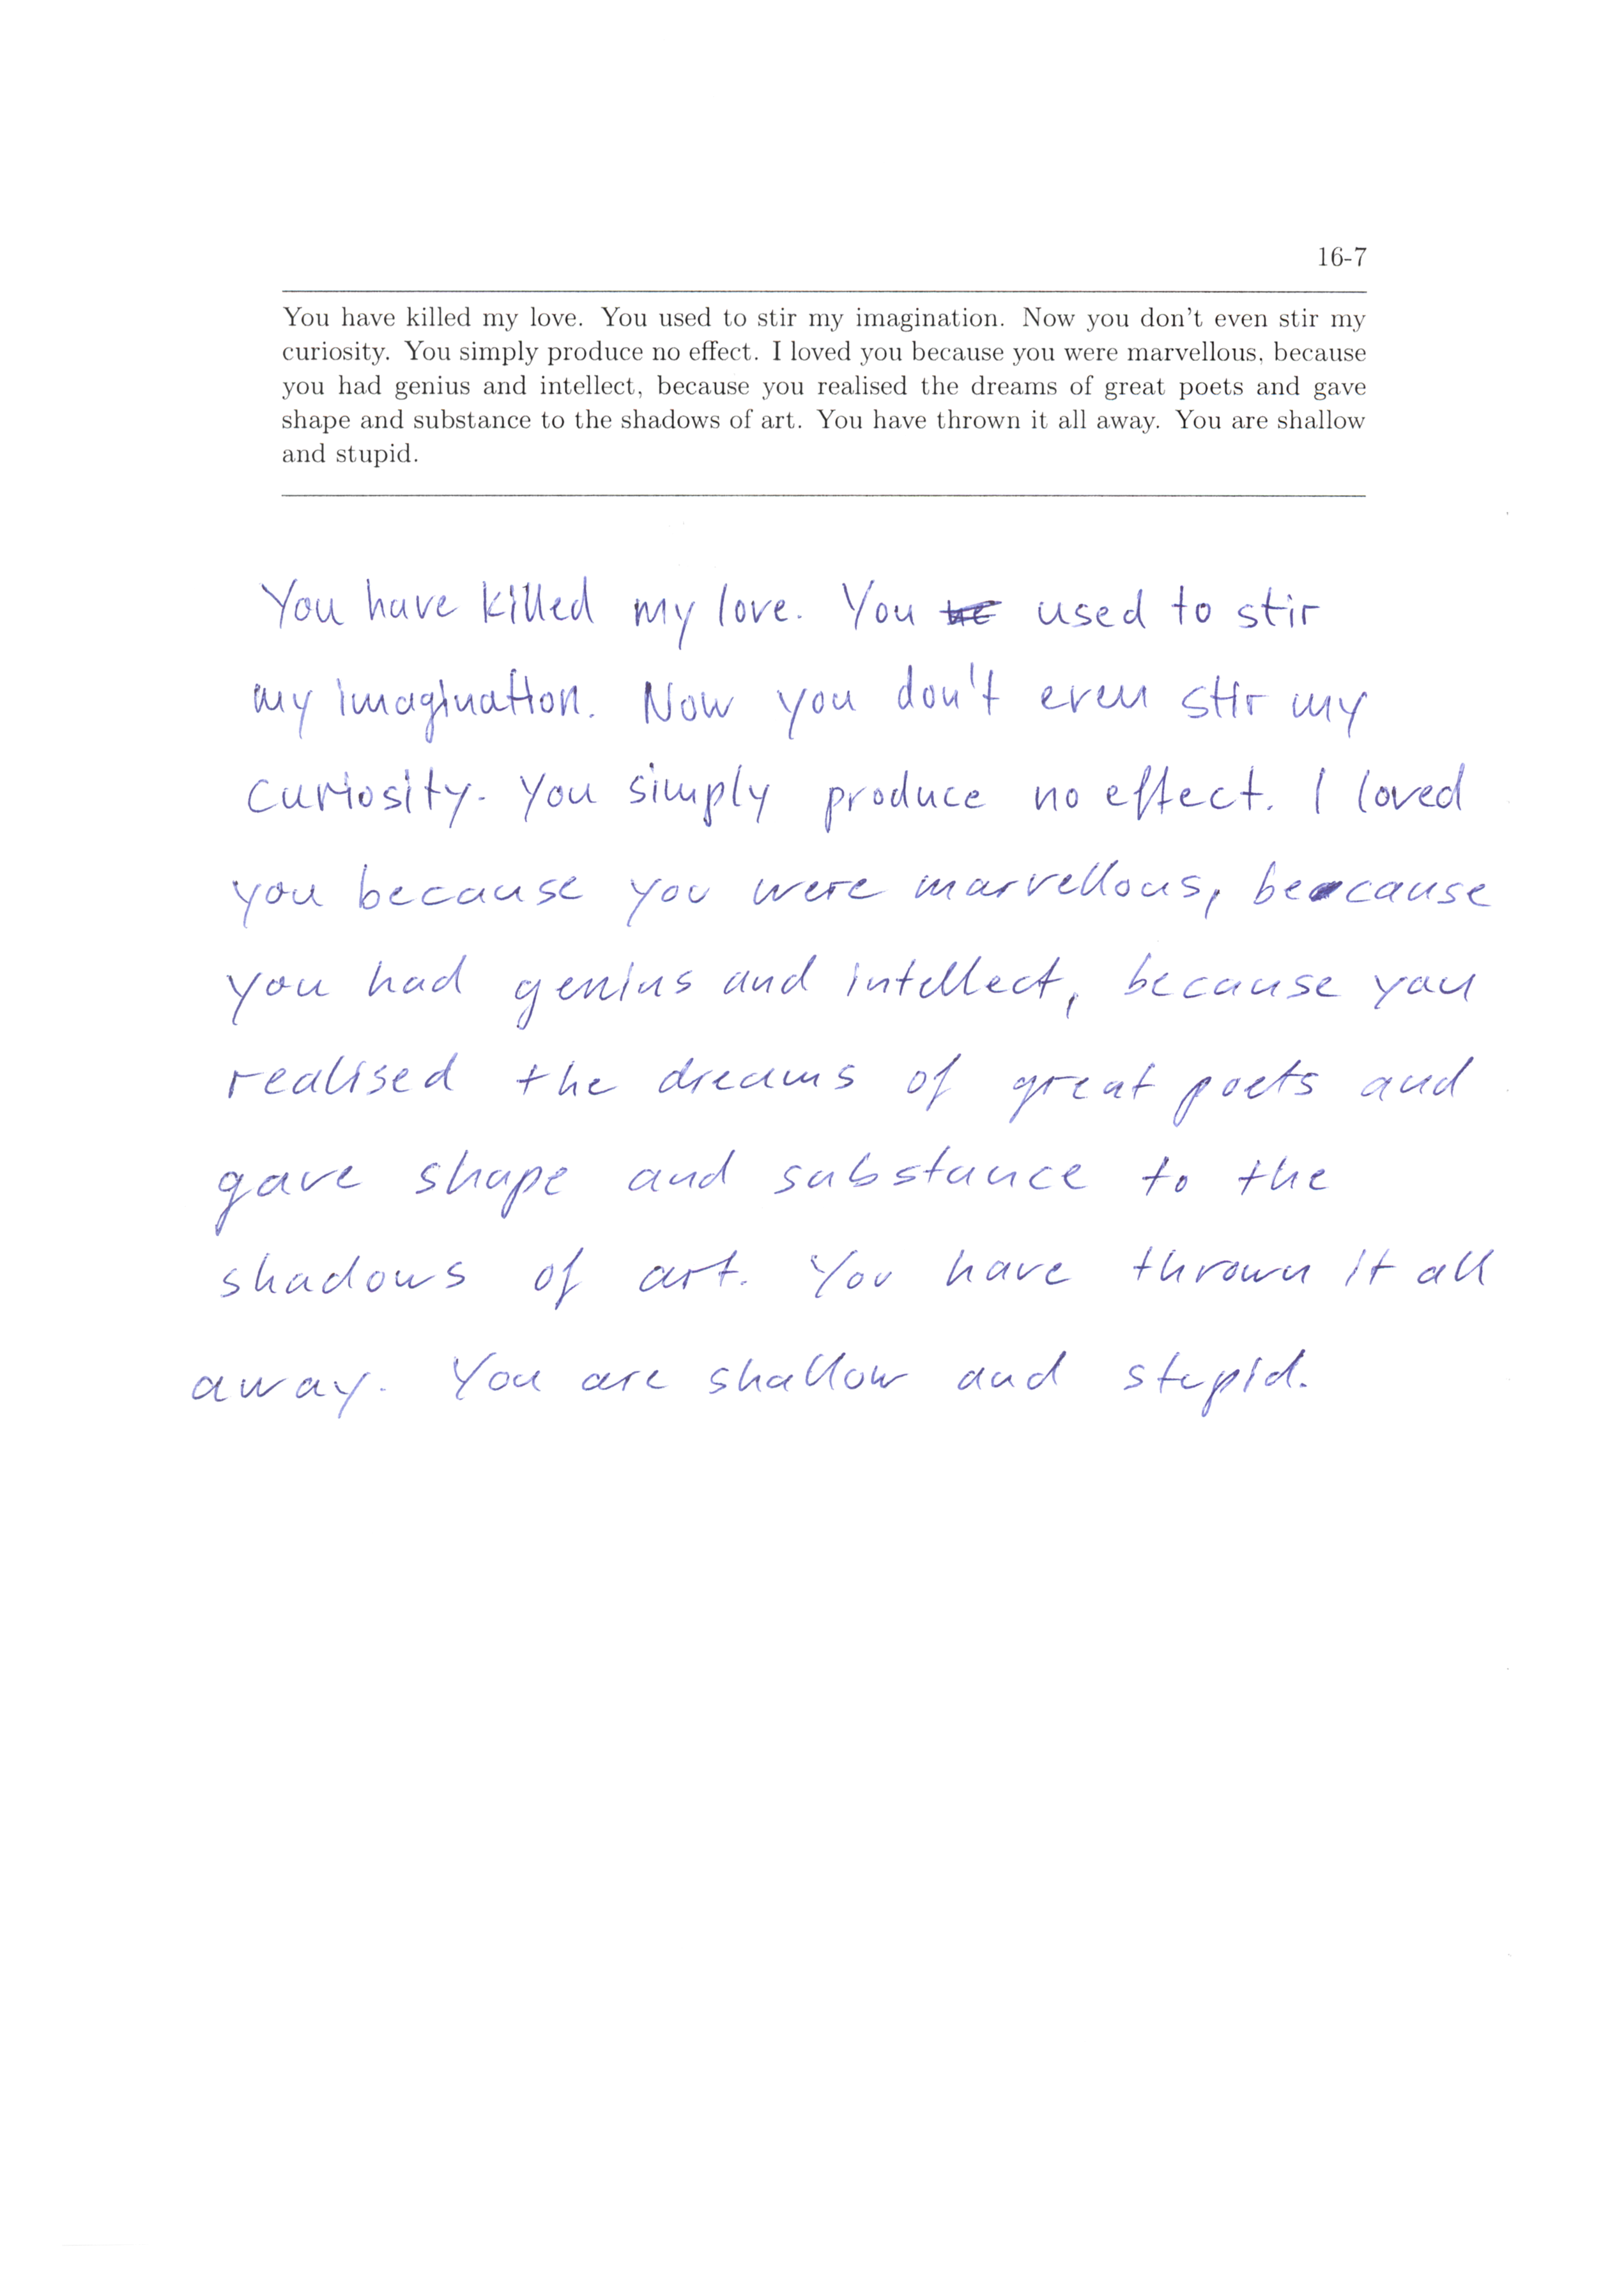 16-7
You have killed my love. You used to stir my imagination. Now you don't even stir my
curiosity. You simply produce no effect. I loved you because you were marvellous, because
you had genius and intellect, because you realised the dreams of great poets and gave
shape and substance to the shadows of art. You have thrown it all away. You are shallow
and stupid.
You have killed my love. You used to stir
my imagination. Now you don't even stir my
curiosity. You simply produce no effect. I loved
you because you were marvellous, because
you had genius and intellect, because you
realised the dreams of great poets and
gave shape and substance to the
shadows of art. You have thrown it all
away. You are shallow and stupid.